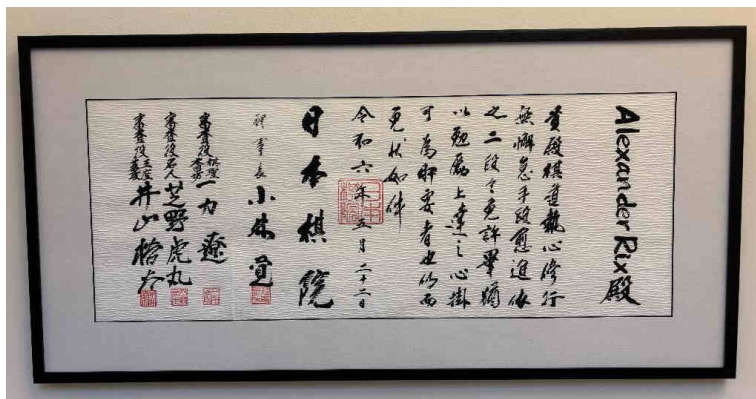 Alexander Rix殿
貴殿棋道執心修行
無懈怠手段愈進依
之二段令免許畢猶
以勉励上達之心掛
可為肝要者也仍而
免状如件
令和六年五月二十二日
日本棋院
理事長 小林覚
審査役 棋聖 本因坊 一力遼
審査役名人 芝野虎丸
審査役 王座 碁聖 井山裕太